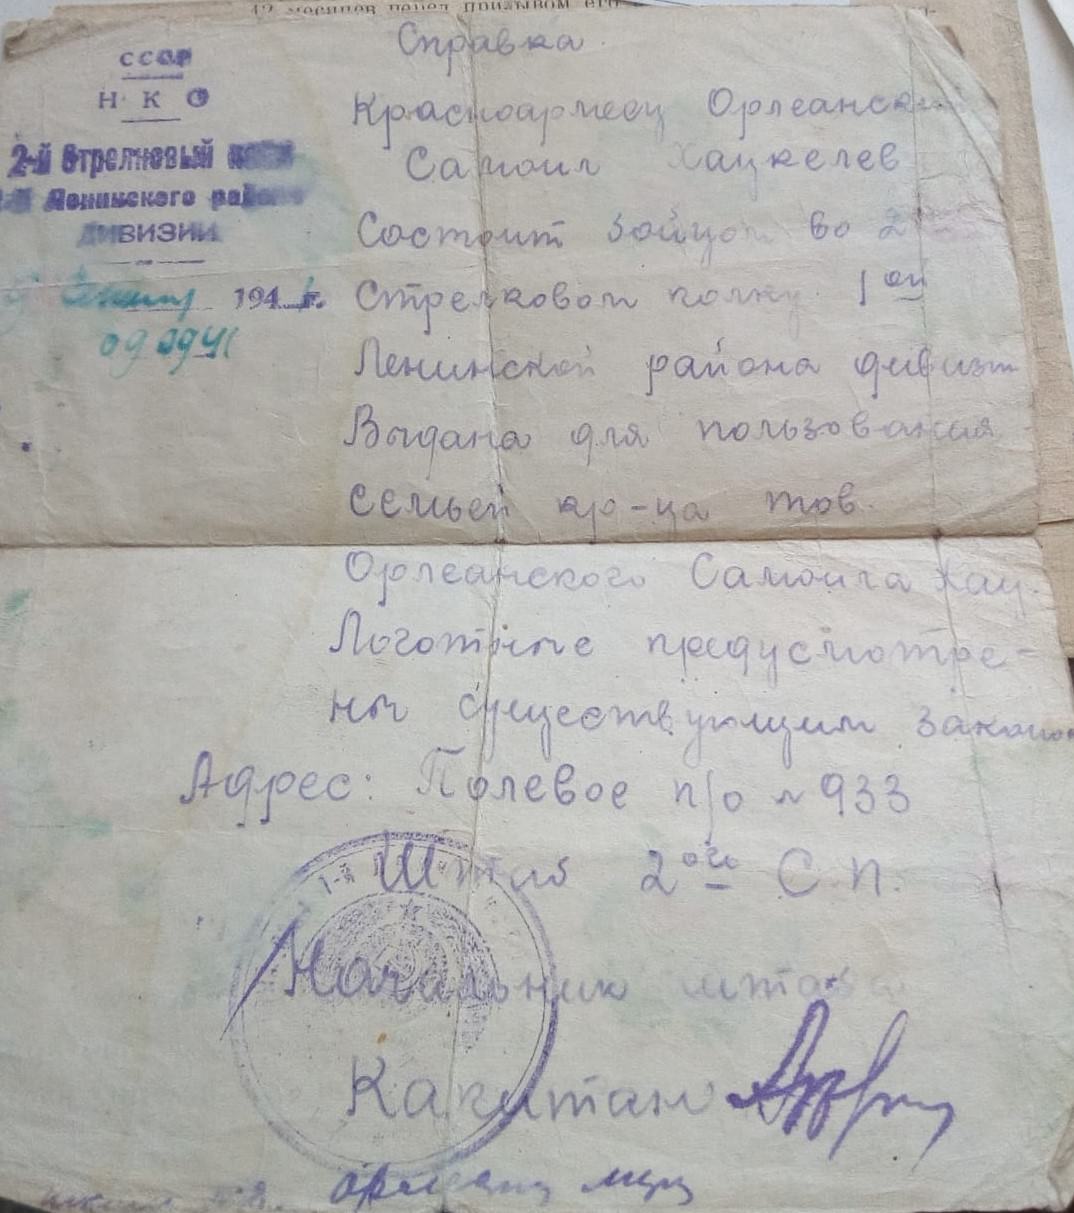 12 месяцев перед призывом его
СССР
Н К О
2-й Стрелковый полк
1-й Ленинского района
ДИВИЗИИ
194 г.
Справка.
Красноармеец Орлеанский
Самоил Хацкелев
Состоит бойцом во 2
Стрелковом полку 1ой
Ленинской района дивизии
Выдана для пользования
семьей кр-ца тов.
Орлеанского Самоила Хац.
Логотные предусмотре-
ны существующим законом
Адрес: Полевое п/о № 933
Штаб 2ого С.П.
Начальник штаба
Капитан
1-й